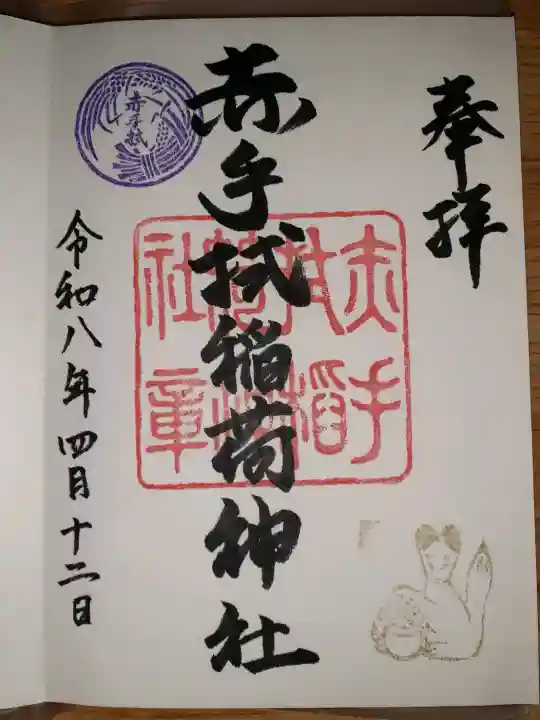 奉拝
赤手拭稲荷神社
赤手拭
赤手拭稲荷神社章
令和八年四月十二日